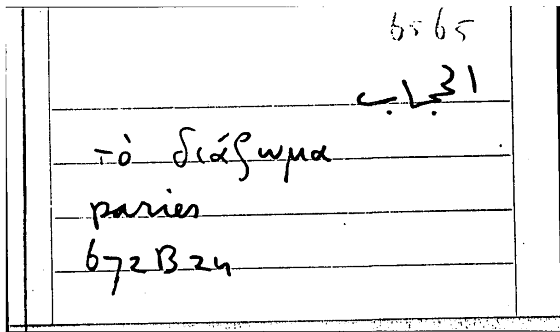 6565
الحجاب
τὸ διάζωμα
paries
672B24